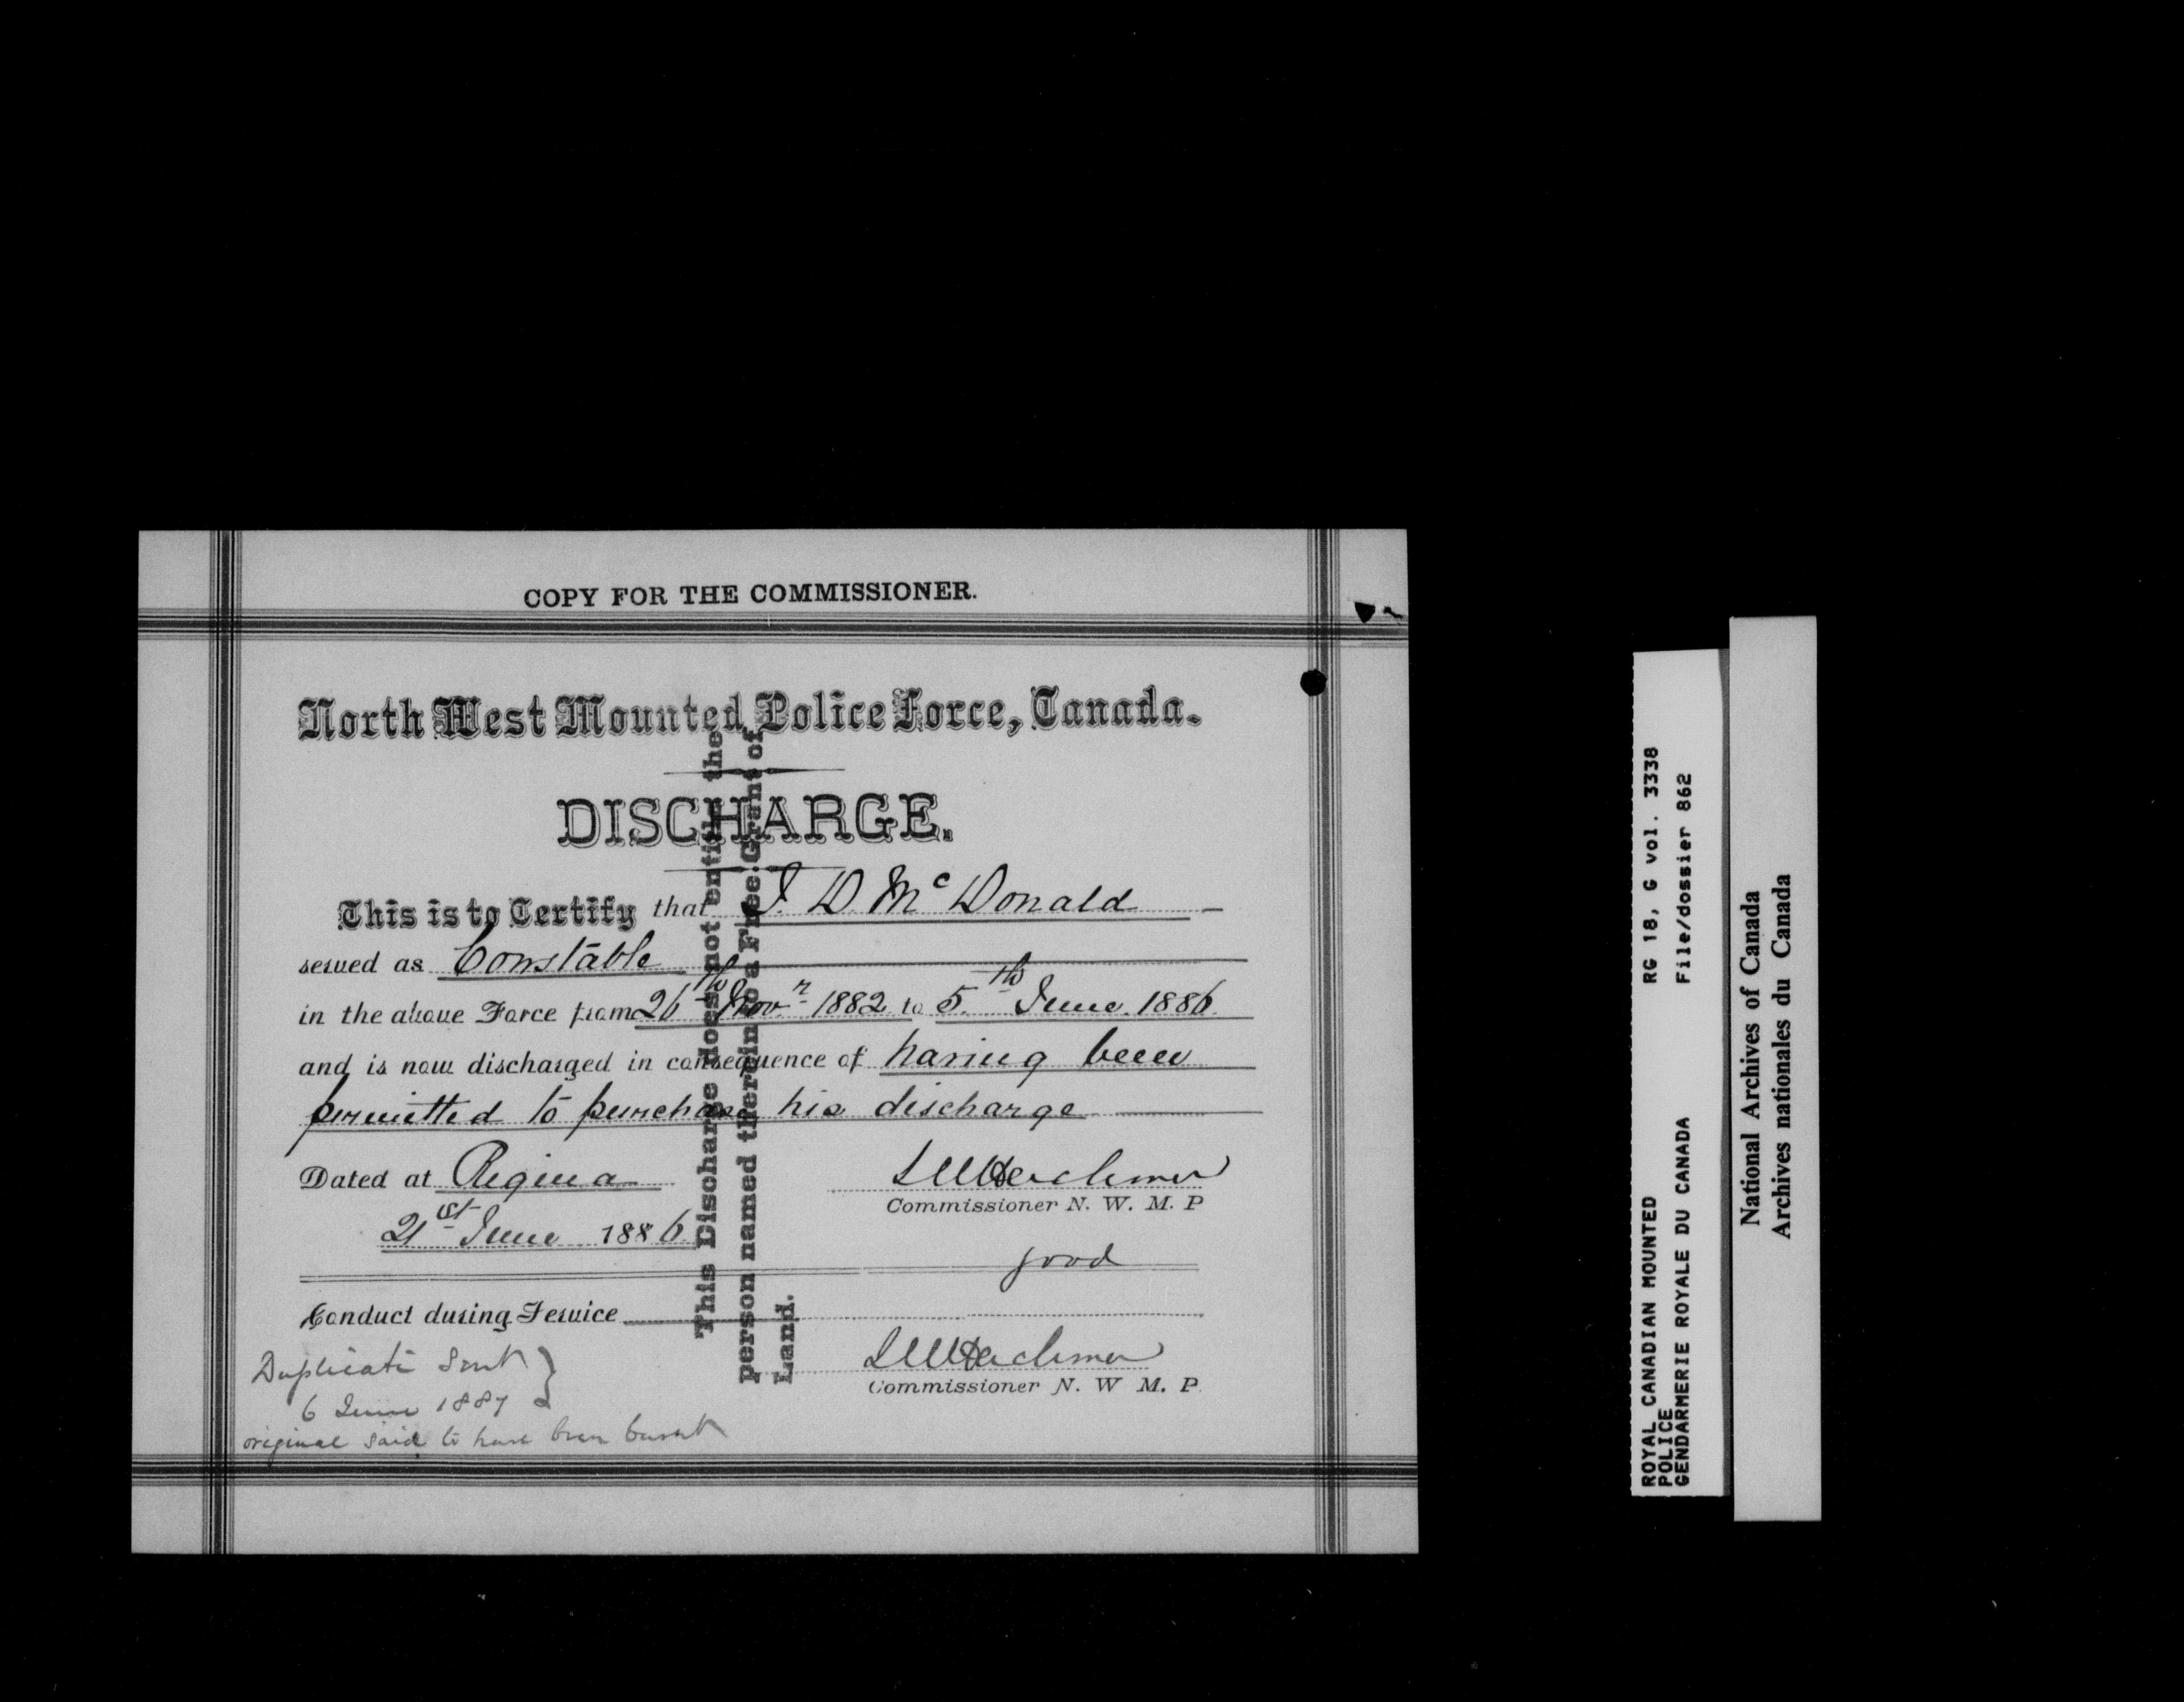 COPY FOR THE COMMISSIONER.
North West Mounted Police Force, Canada.
DISCHARGE.
This is to Certify that J. D. Mc Donald
served as Constable
in the above Force from 26th Novr 1882 to 5th June 1886
and is now discharged in consequence of having been
permitted to purchase his discharge
Dated at Regina
21st June 1886
LWHerchmer
Commissioner N. W. M. P
good
Conduct during Service
LWHerchmer
Commissioner N. W M. P.
Duplicate Sent
6 June 1887
original said to have been burnt
This Discharge does not entitle the
person named therein to a Free Grant of
Land.
ROYAL CANADIAN MOUNTED RG 18, G vol. 3338
POLICE
GENDARMERIE ROYALE DU CANADA File/dossier 862
National Archives of Canada
Archives nationales du Canada